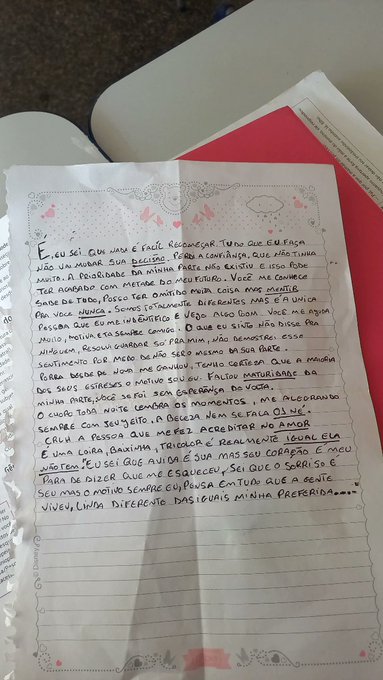 É, EU SEI QUE NADA É FACIL RECOMEÇAR. TUDO QUE EU FAÇA
NÃO VAI MUDAR SUA DECISÃO. PERDI A CONFIANÇA, QUE NÃO TINHA
MUITO. A PRIORIDADE DA MINHA PARTE NÃO EXISTIU E ISSO PODE
TER ACABADO COM METADE DO MEU FUTURO. VOCÊ ME CONHECE
SABE DE TUDO, POSSO TER OMITIDO MUITA COISA MAS MENTIR
PRA VOCÊ NUNCA. SOMOS TOTALMENTE DIFERENTES MAS É A UNICA
PESSOA QUE EU ME INDENTIFICO E VEJO ALGO BOM. VOCÊ ME AJUDA
MUITO, MOTIVA E TA SEMPRE COMIGO. O QUE EU SINTO NÃO DISSE PRA
NINGUEM, RESOLVI GUARDAR SO PRA MIM, NÃO DEMOSTREI ESSE
SENTIMENTO POR MEDO DE NÃO SER O MESMO DA SUA PARTE.
PORRA DESDE DE NOVO ME GANHOU, TENHO CERTEZA QUE A MAIORIA
DOS SEUS ESTRESES O MOTIVO SOU EU. FALTOU MATURIDADE DA
MINHA PARTE, VOCÊ SE FOI SEM ESPERANÇA DE VOLTA.
O CHOPO TODA NOITE LEMBRA OS MOMENTOS, ME ALEGRANDO
SEMPRE COM JEU JEITO. A BELEZA NEM SE FALA
A PESSOA QUE ME FEZ ACREDITAR NO AMOR
É UMA LOIRA, BAIXINHA, TRICOLOR E REALMENTE IGUAL ELA
NÃO TEM. "EU SEI QUE A VIDA É SUA MAS SEU CORAÇÃO É MEU
PARA DE DIZER QUE ME ESQUECEU, SEI QUE O SORRISO É
SEU MAS O MOTIVO SEMPRE EU, PENSA EM TUDO QUE A GENTE
VIVEU, LINDA DIFERENTE DAS IGUAIS MINHA PREFERIDA.....
© Disney